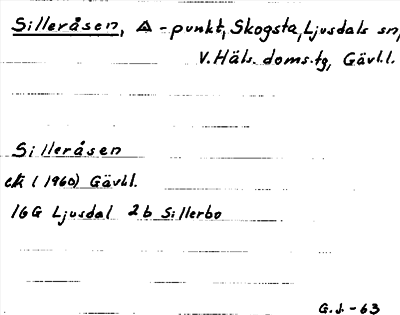 Silleråsen, △-punkt, Skogsta, Ljusdals sn,
V. Häls. doms.tg, Gävl.l.
Silleråsen
ek (1960) Gävl.l.
16G Ljusdal 2b Sillerbo
G.J.-63